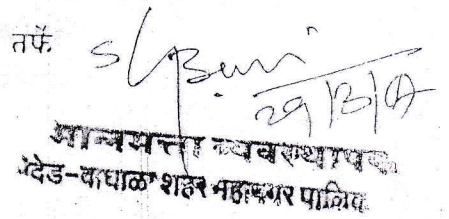 तर्फे
29/3/07
मालमत्ता व्यवस्थापक
नांदेड-वाघाळा शहर महानगर पालिका